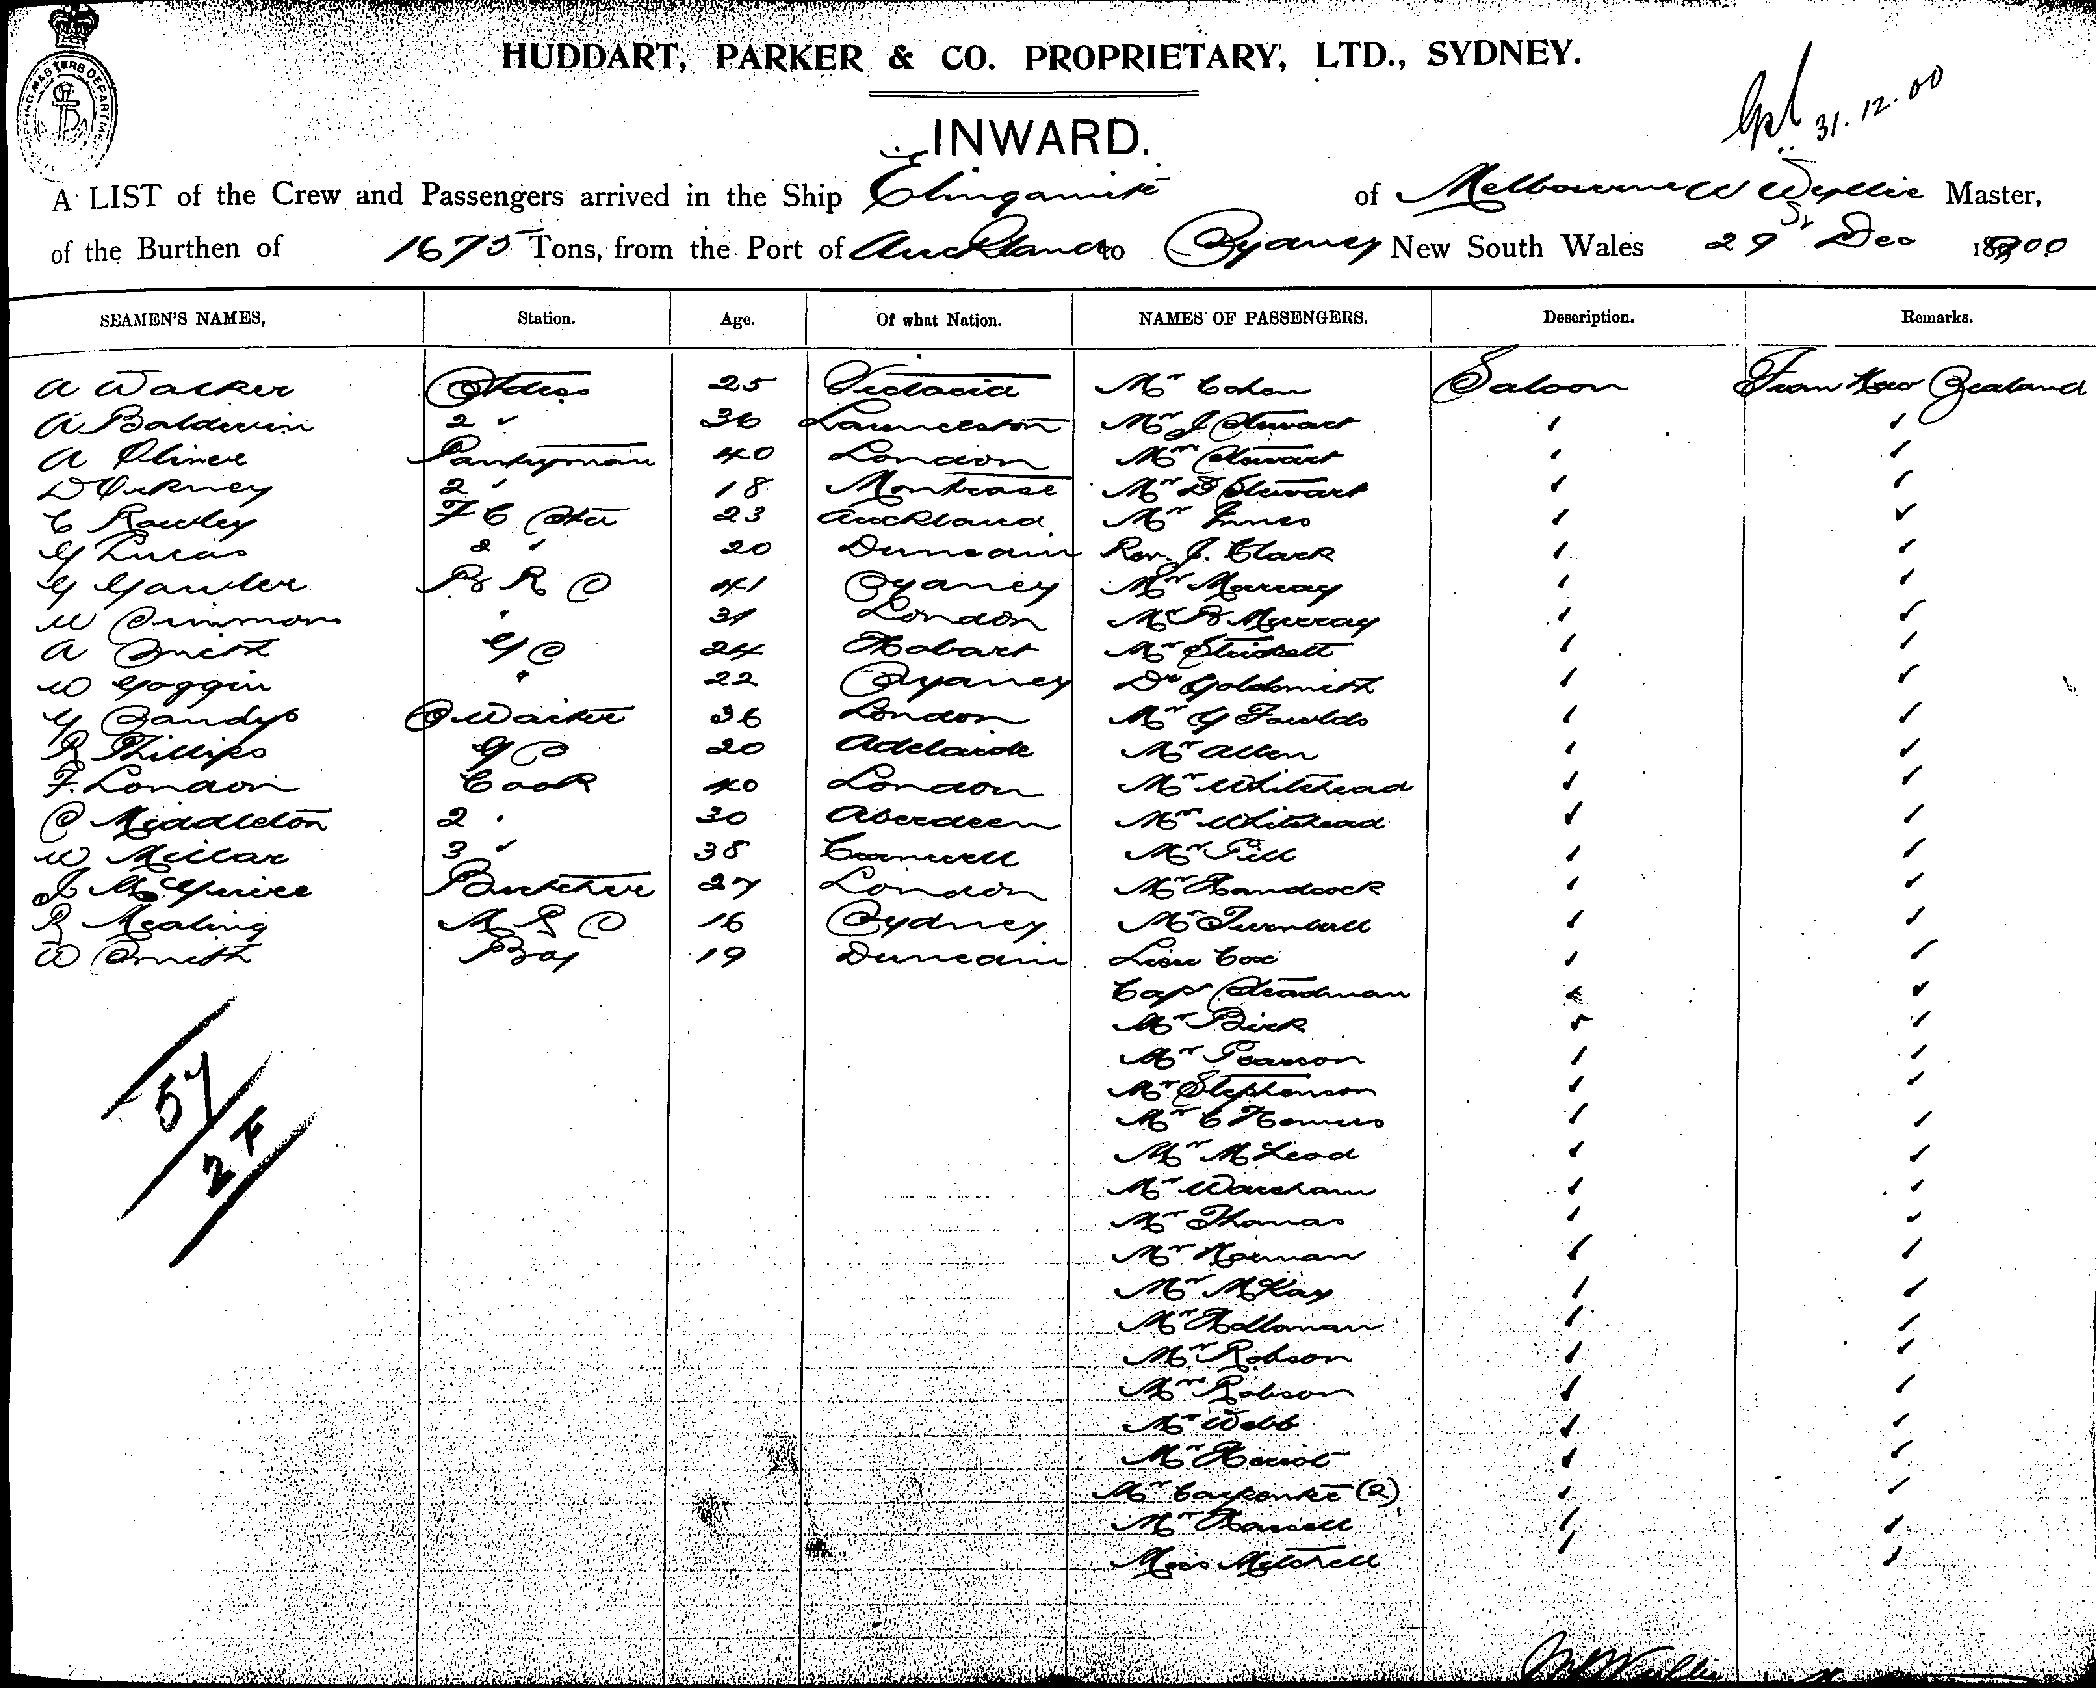 HUDDART, PARKER & CO. PROPRIETARY, LTD., SYDNEY.
31.12.00
INWARD.
A LIST of the Crew and Passengers arrived in the Ship Elingamite of Melbourne W Wyllie Master,
of the Burthen of 1675 Tons, from the Port of Auckland to Sydney New South Wales 29 Dec 1900
SEAMEN'S NAMES, Station. Age. Of what Nation. NAMES OF PASSENGERS. Description. Remarks.
A Walker 25 Victoria Mr Cohen Saloon From New Zealand
A Baldwin 2 " 36 Launceston Mr J Stewart
A Oliver Pantryman 40 London Mrs Stewart
D Orkney 2 " 18 Montrose Mr D Stewart
C Rowley F C 23 Auckland Mr Innes
G Lucas 2 " 20 Dunedin Rev. J. Clark
G Gawler B R S 41 Sydney Mr Murray
W Simmons " 31 London Mr B Murray
A Smith G S 24 Hobart Mr
W Goggin " 22 Sydney Dr Goldsmith
G Sandys S Waiter 36 London Mr G Fowlds
R Phillips G S 20 Adelaide Mr Allen
F. London Cook 40 London Mr Whitehead
C Middleton 2 " 30 Aberdeen Mrs Whitehead
W Millar 3 " 38 Cornwell Mr Gill
J McGuire Butcher 27 London Mr Handcock
R Mealing M R S 16 Sydney Mr Turnbull
W Smith Boy 19 Dunedin Lieu Cox
Capt Steadman
Mr Birk
Mr Pearson
Mr Stephenson
Mr C
Mr McLeod
Mr Wareham
Mr Thomas
Mr Norman
Mr McKay
Mr Holloman
Mr Robson
Mrs Robson
Mr Webb
Mr Heriot
57
2 F
Mr (2)
Mr
Miss Mitchell